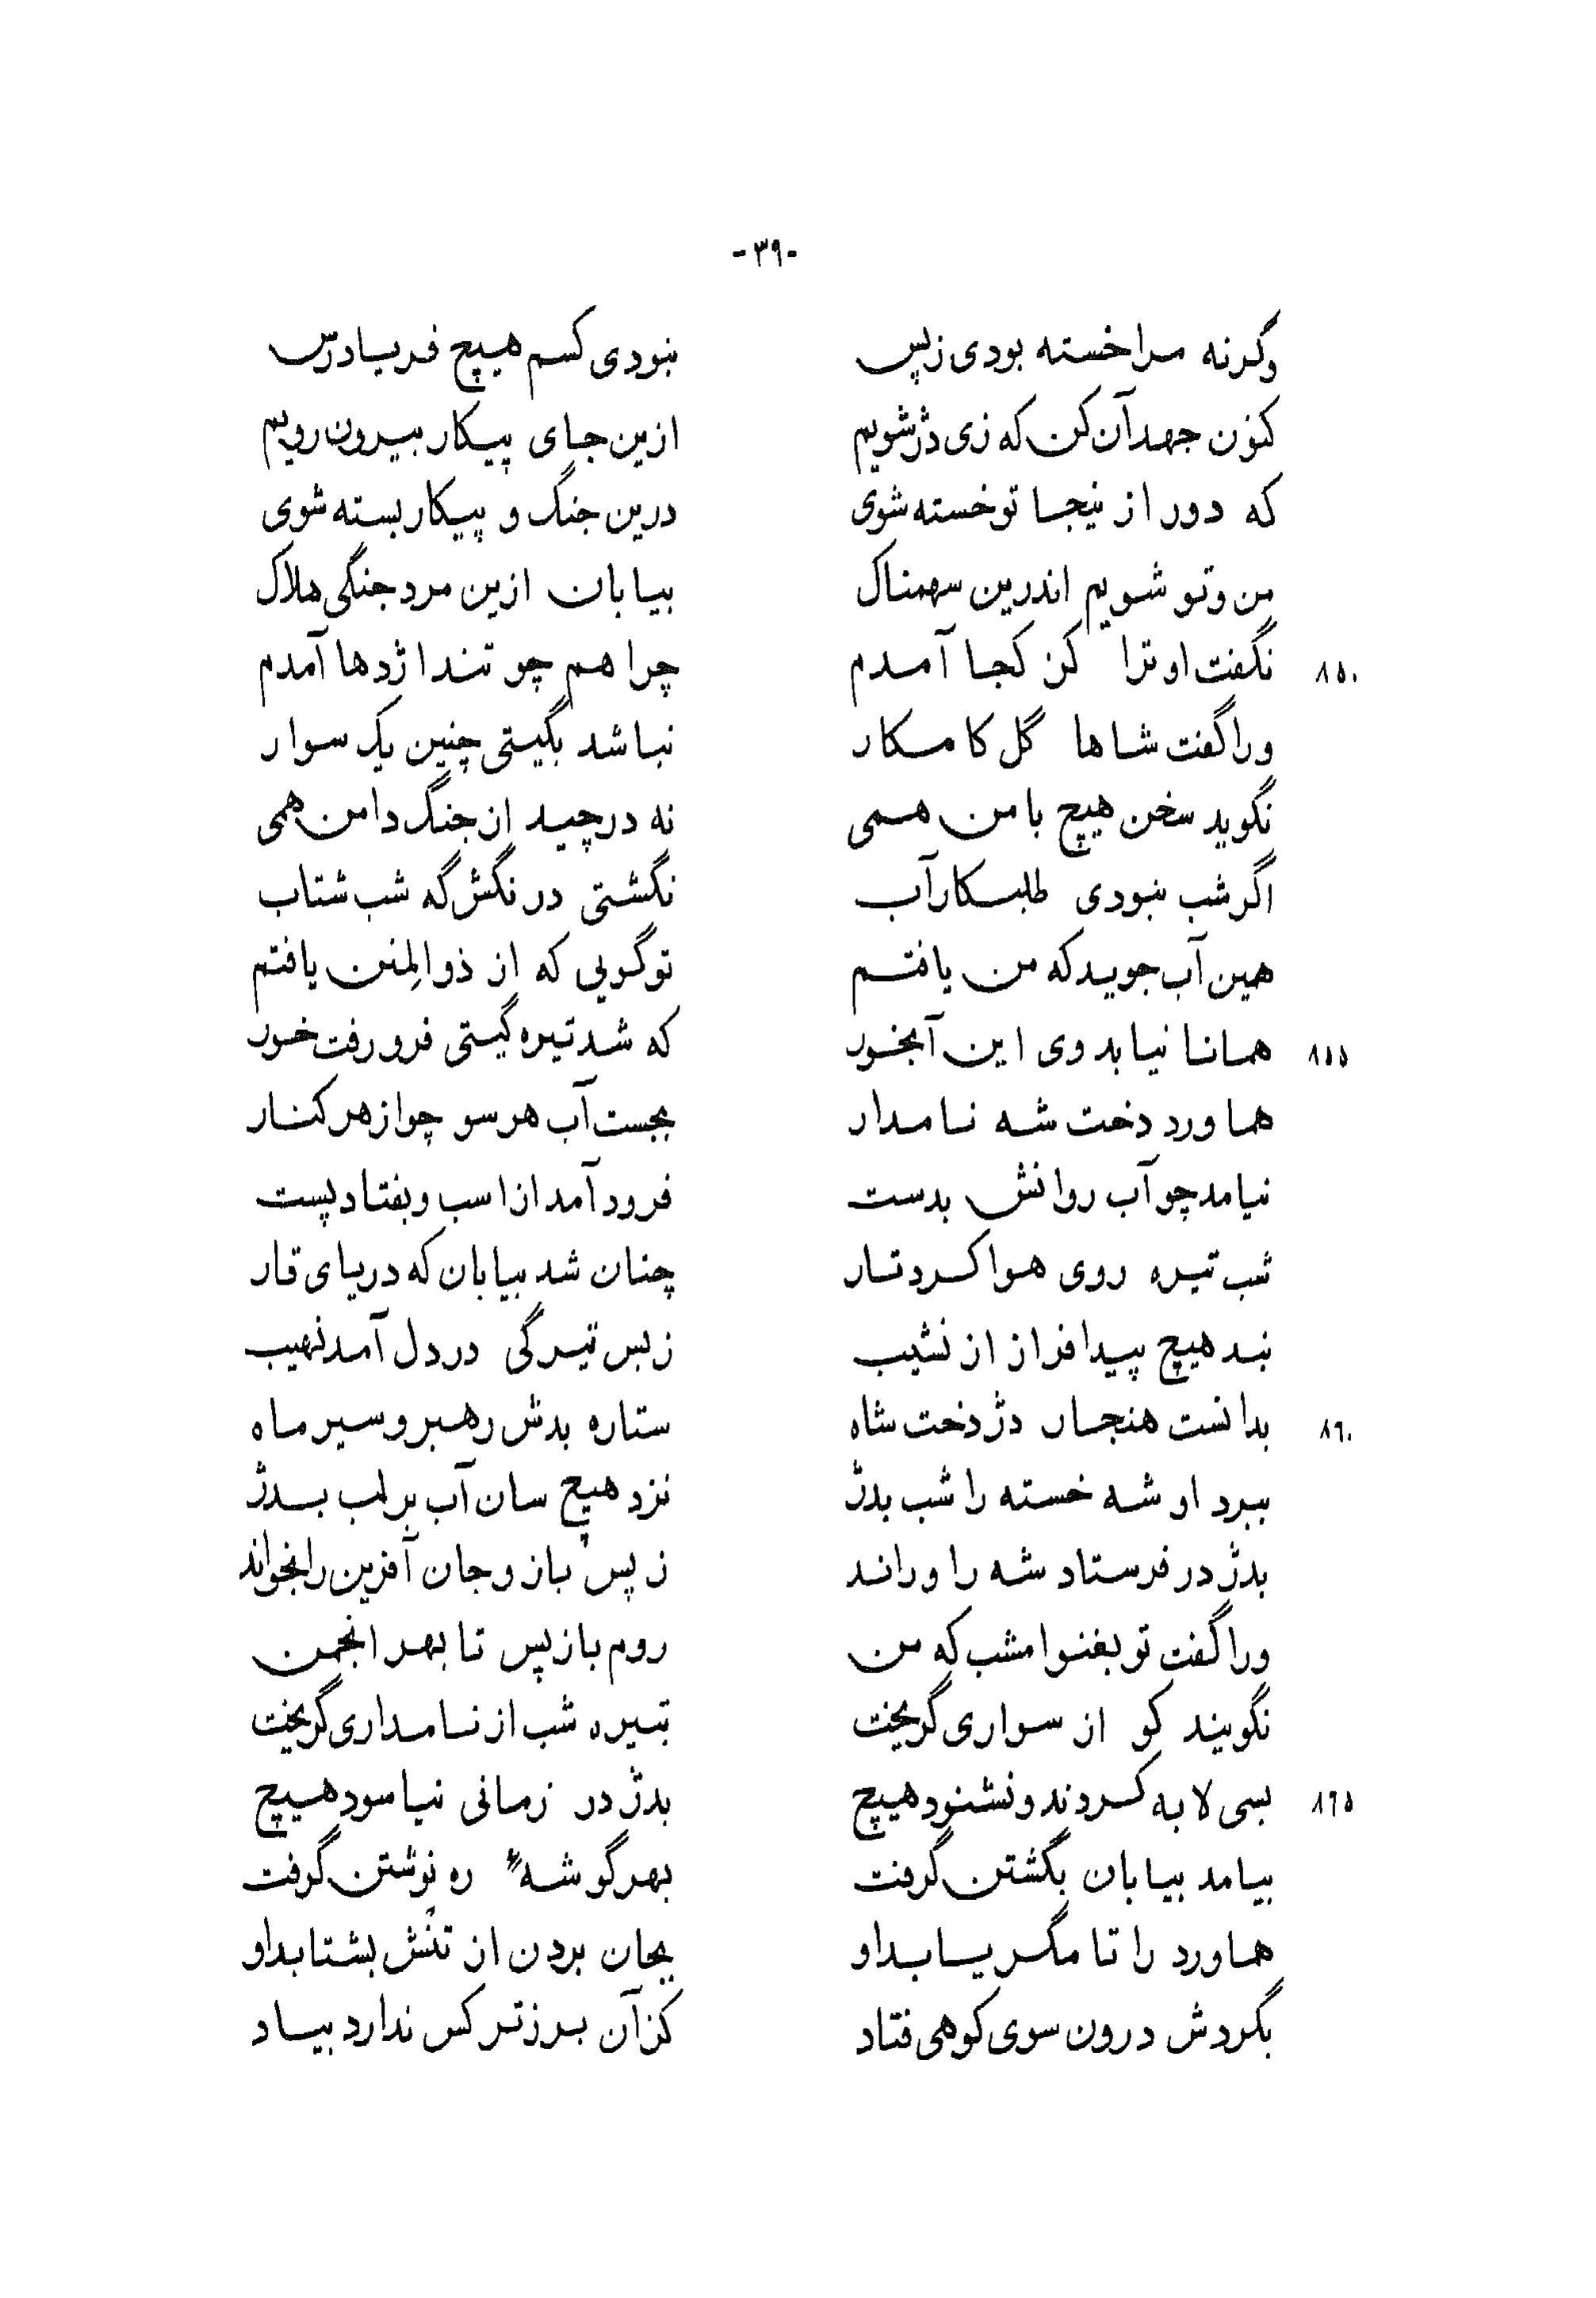 -۳۹-
وگرنه مرا خسته بودی ز پس نبودی کسم هیچ فریادرس
کنون جهد آن کن که زی دژ شویم ازین جای پیکار بیرون رویم
که دور از نیجا تو خسته شوی درین جنگ و پیکار بسته شوی
من و تو شویم اندرین سهمناک بیابان ازین مرد جنگی هلاک
۸۵۰ نگفت او ترا کن کجا آمدم چرا هم چو تند اژدها آمدم
ورا گفت شاها گل کامکار نباشد بگیتی چنین یک سوار
نگوید سخن هیچ با من همی نه درچید از جنگ دامن همی
اگر شب نبودی طلبکار آب نگشتی در نگش گه شب شتاب
همین آب جوید که من یافتم تو گویی که از ذوالمنن یافتم
۸۵۵ همانا نیابد وی این آبخور که شد تیره گیتی فرو رفت خور
هماورد دخت شه نامدار بجست آب هر سو چو از هر کنار
نیامد چو آب روانش بدست فرود آمد از اسب و بفتاد پست
شب تیره روی هوا کرد تار چنان شد بیابان که دریای قار
نبد هیچ پیدا فراز از نشیب ز بس تیرگی در دل آمد نهیب
۸۶۰ بدانست هنجار دژ دخت شاه ستاره بدش رهبر و سیر ماه
ببرد او شه خسته را شب بدژ نزد هیچ سان آب بر لب بدژ
بدژ در فرستاد شه را و راند ز پس باز و جان آفرین را بخواند
ورا گفت تو بغنو امشب که من روم باز پس تا بهر انجمن
نگویند کو از سواری گریخت بتیره شب از نامداری گریخت
۸۶۵ بسی لابه کردند و نشنود هیچ بدژ در زمانی نیاسود هیچ
بیامد بیابان بگشتن گرفت بهر گوشهٔ ره نوشتن گرفت
هماورد را تا مگر یابد او بجان بردن از تنش بشتابد او
بگردش درون سوی کوهی فتاد کز آن برزتر کس ندارد بیاد